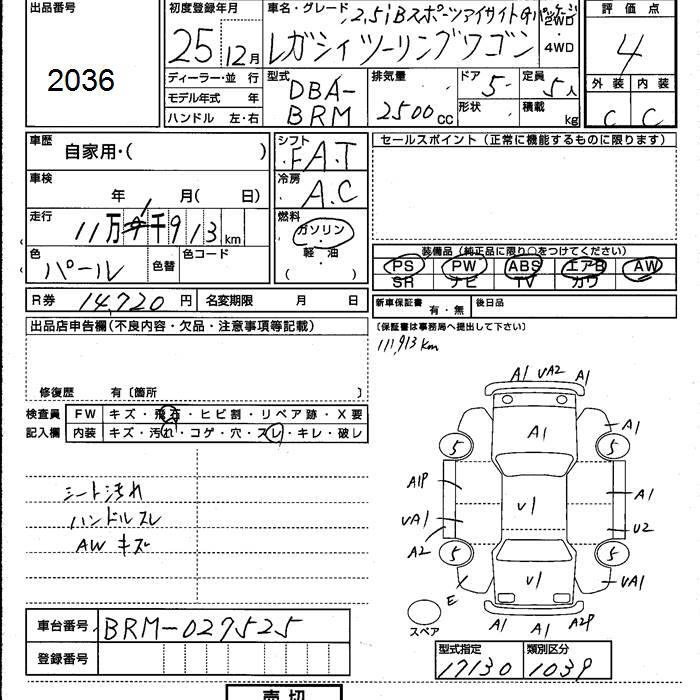 出品番号
2036
初度登録年月
25 12月
車名・グレード
2.5iBスポーツアイサイトGパッケージ
レガシィツーリングワゴン
2WD
・
4WD
評価点
4
外装 内装
C C
ディーラー・並 行
モデル年式 年
ハンドル 左・右
型式
DBA-
BRM
排気量
2500cc
ドア 5
形状
定員 5人
積載 kg
車歴
自家用・( )
車検
年 1月( 日)
走行
11万 千913km
色
パール
色替
色コード
シフト
FAT
冷房
A.C
燃料
ガソリン
・
軽・油
( )
セールスポイント (正常に機能するものに限ります)
装備品(純正品に限り○をつけてください)
PS PW ABS エアB AW
SR ナビ TV カワ
R券 14,720 円 名変期限 月 日
新車保証書 有・無 後日品
(保証書は事務局へ提出して下さい)
111,913km
出品店申告欄(不良内容・欠品・注意事項等記載)
修復歴 有〔箇所 〕
検査員
記入欄
FW キズ・飛石・ヒビ割・リペア跡・X要
内装 キズ・汚れ・コゲ・穴・スレ・キレ・破レ
シート汚れ
ハンドルスレ
AWキズ
A1 UA2 A1
A1
A1
5 5
A1P
U1
A1
UA1
U2
A2
5 5
U1
E
UA1
スペア
A1 A1 A2P
車台番号 BRM-027525
登録番号
型式指定 類別区分
17130 1039
売切